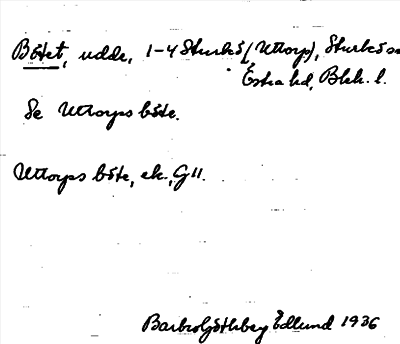 Bötet, udde, 1-4 Sturkö (Uttorp), Sturkö sn
Östra hd, Blek. l.
Se Uttorps böte.
Uttorps böte, ek., G11.
Edlund 1936